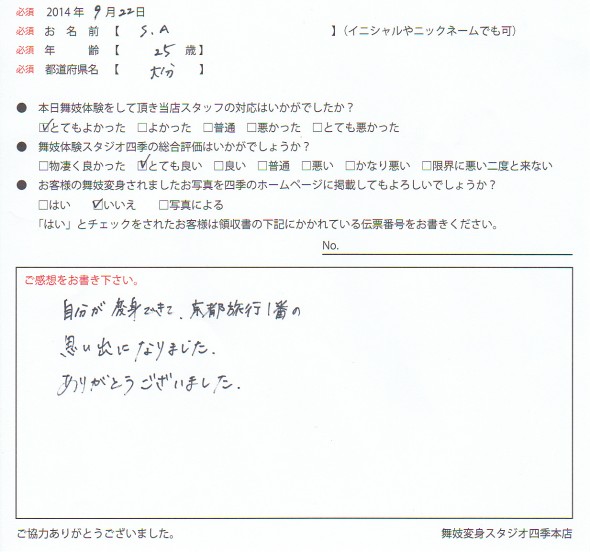 必須 2014年 9月22日
必須 お名前【 S.A 】(イニシャルやニックネームでも可)
必須 年齢【 25 歳】
必須 都道府県名【 大分 】
● 本日舞妓体験をして頂き当店スタッフの対応はいかがでしたか?
☑とてもよかった □よかった □普通 □悪かった □とても悪かった
● 舞妓体験スタジオ四季の総合評価はいかがでしょうか?
□物凄く良かった ☑とても良い □良い □普通 □悪い □かなり悪い □限界に悪い二度と来ない
● お客様の舞妓変身されましたお写真を四季のホームページに掲載してもよろしいでしょうか?
□はい ☑いいえ □写真による
「はい」とチェックをされたお客様は領収書の下記にかかれている伝票番号をお書きください。
No.
ご感想をお書き下さい。
自分が変身できて、京都旅行1番の
思い出になりました。
ありがとうございました。
ご協力ありがとうございました。 舞妓変身スタジオ四季本店